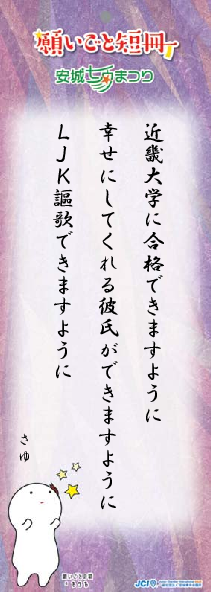 願いごと短冊
安城七夕まつり
近畿大学に合格できますように
幸せにしてくれる彼氏ができますように
LJK謳歌できますように
さゆ
JCI